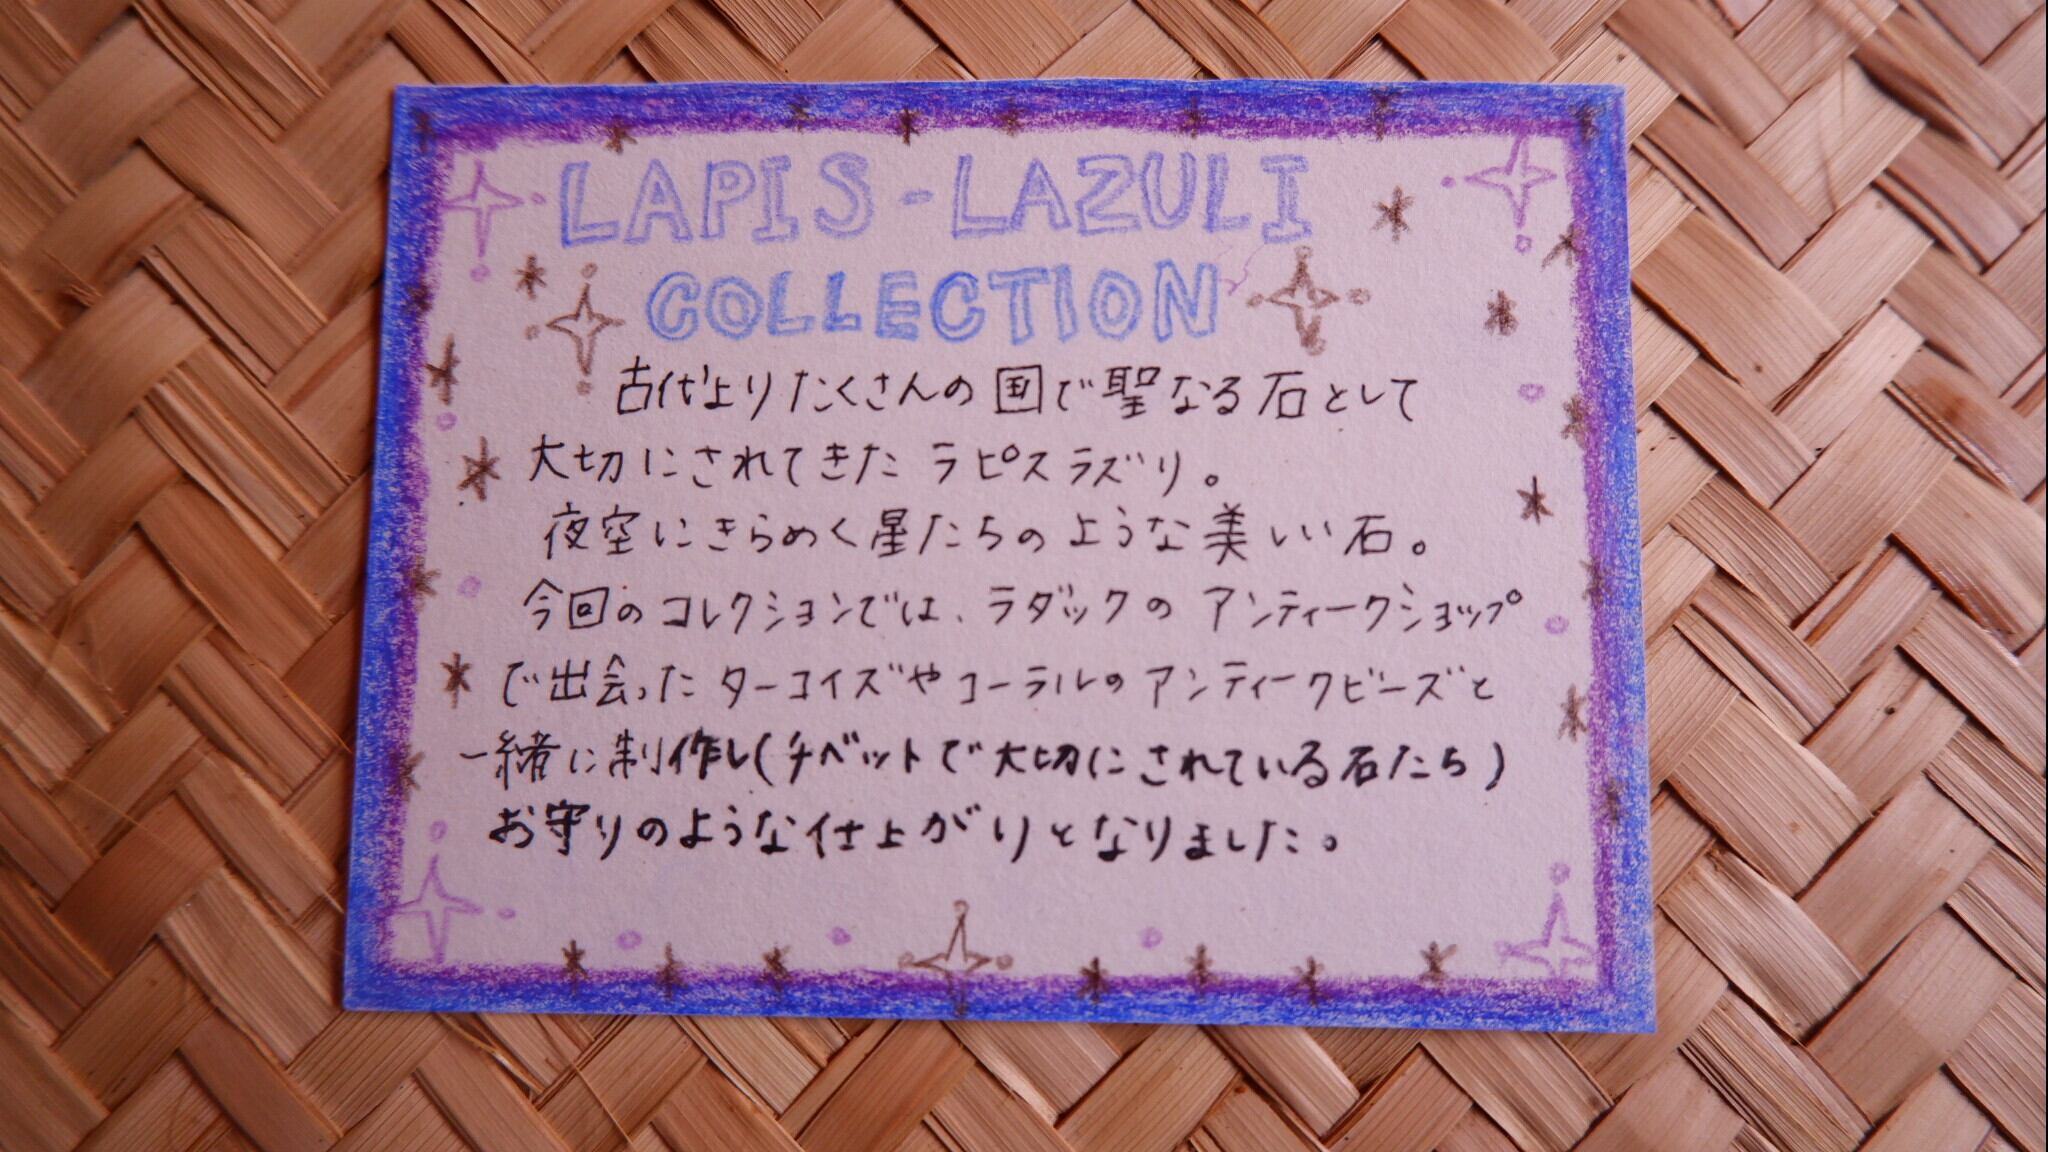 LAPIS-LAZULI
COLLECTION
古代よりたくさんの国で聖なる石として
大切にされてきたラピスラズリ。
夜空にきらめく星たちのような美しい石。
今回のコレクションでは、ラダックのアンティークショップ
で出会ったターコイズやコーラルのアンティークビーズと
一緒に制作し(チベットで大切にされている石たち)
お守りのような仕上がりとなりました。